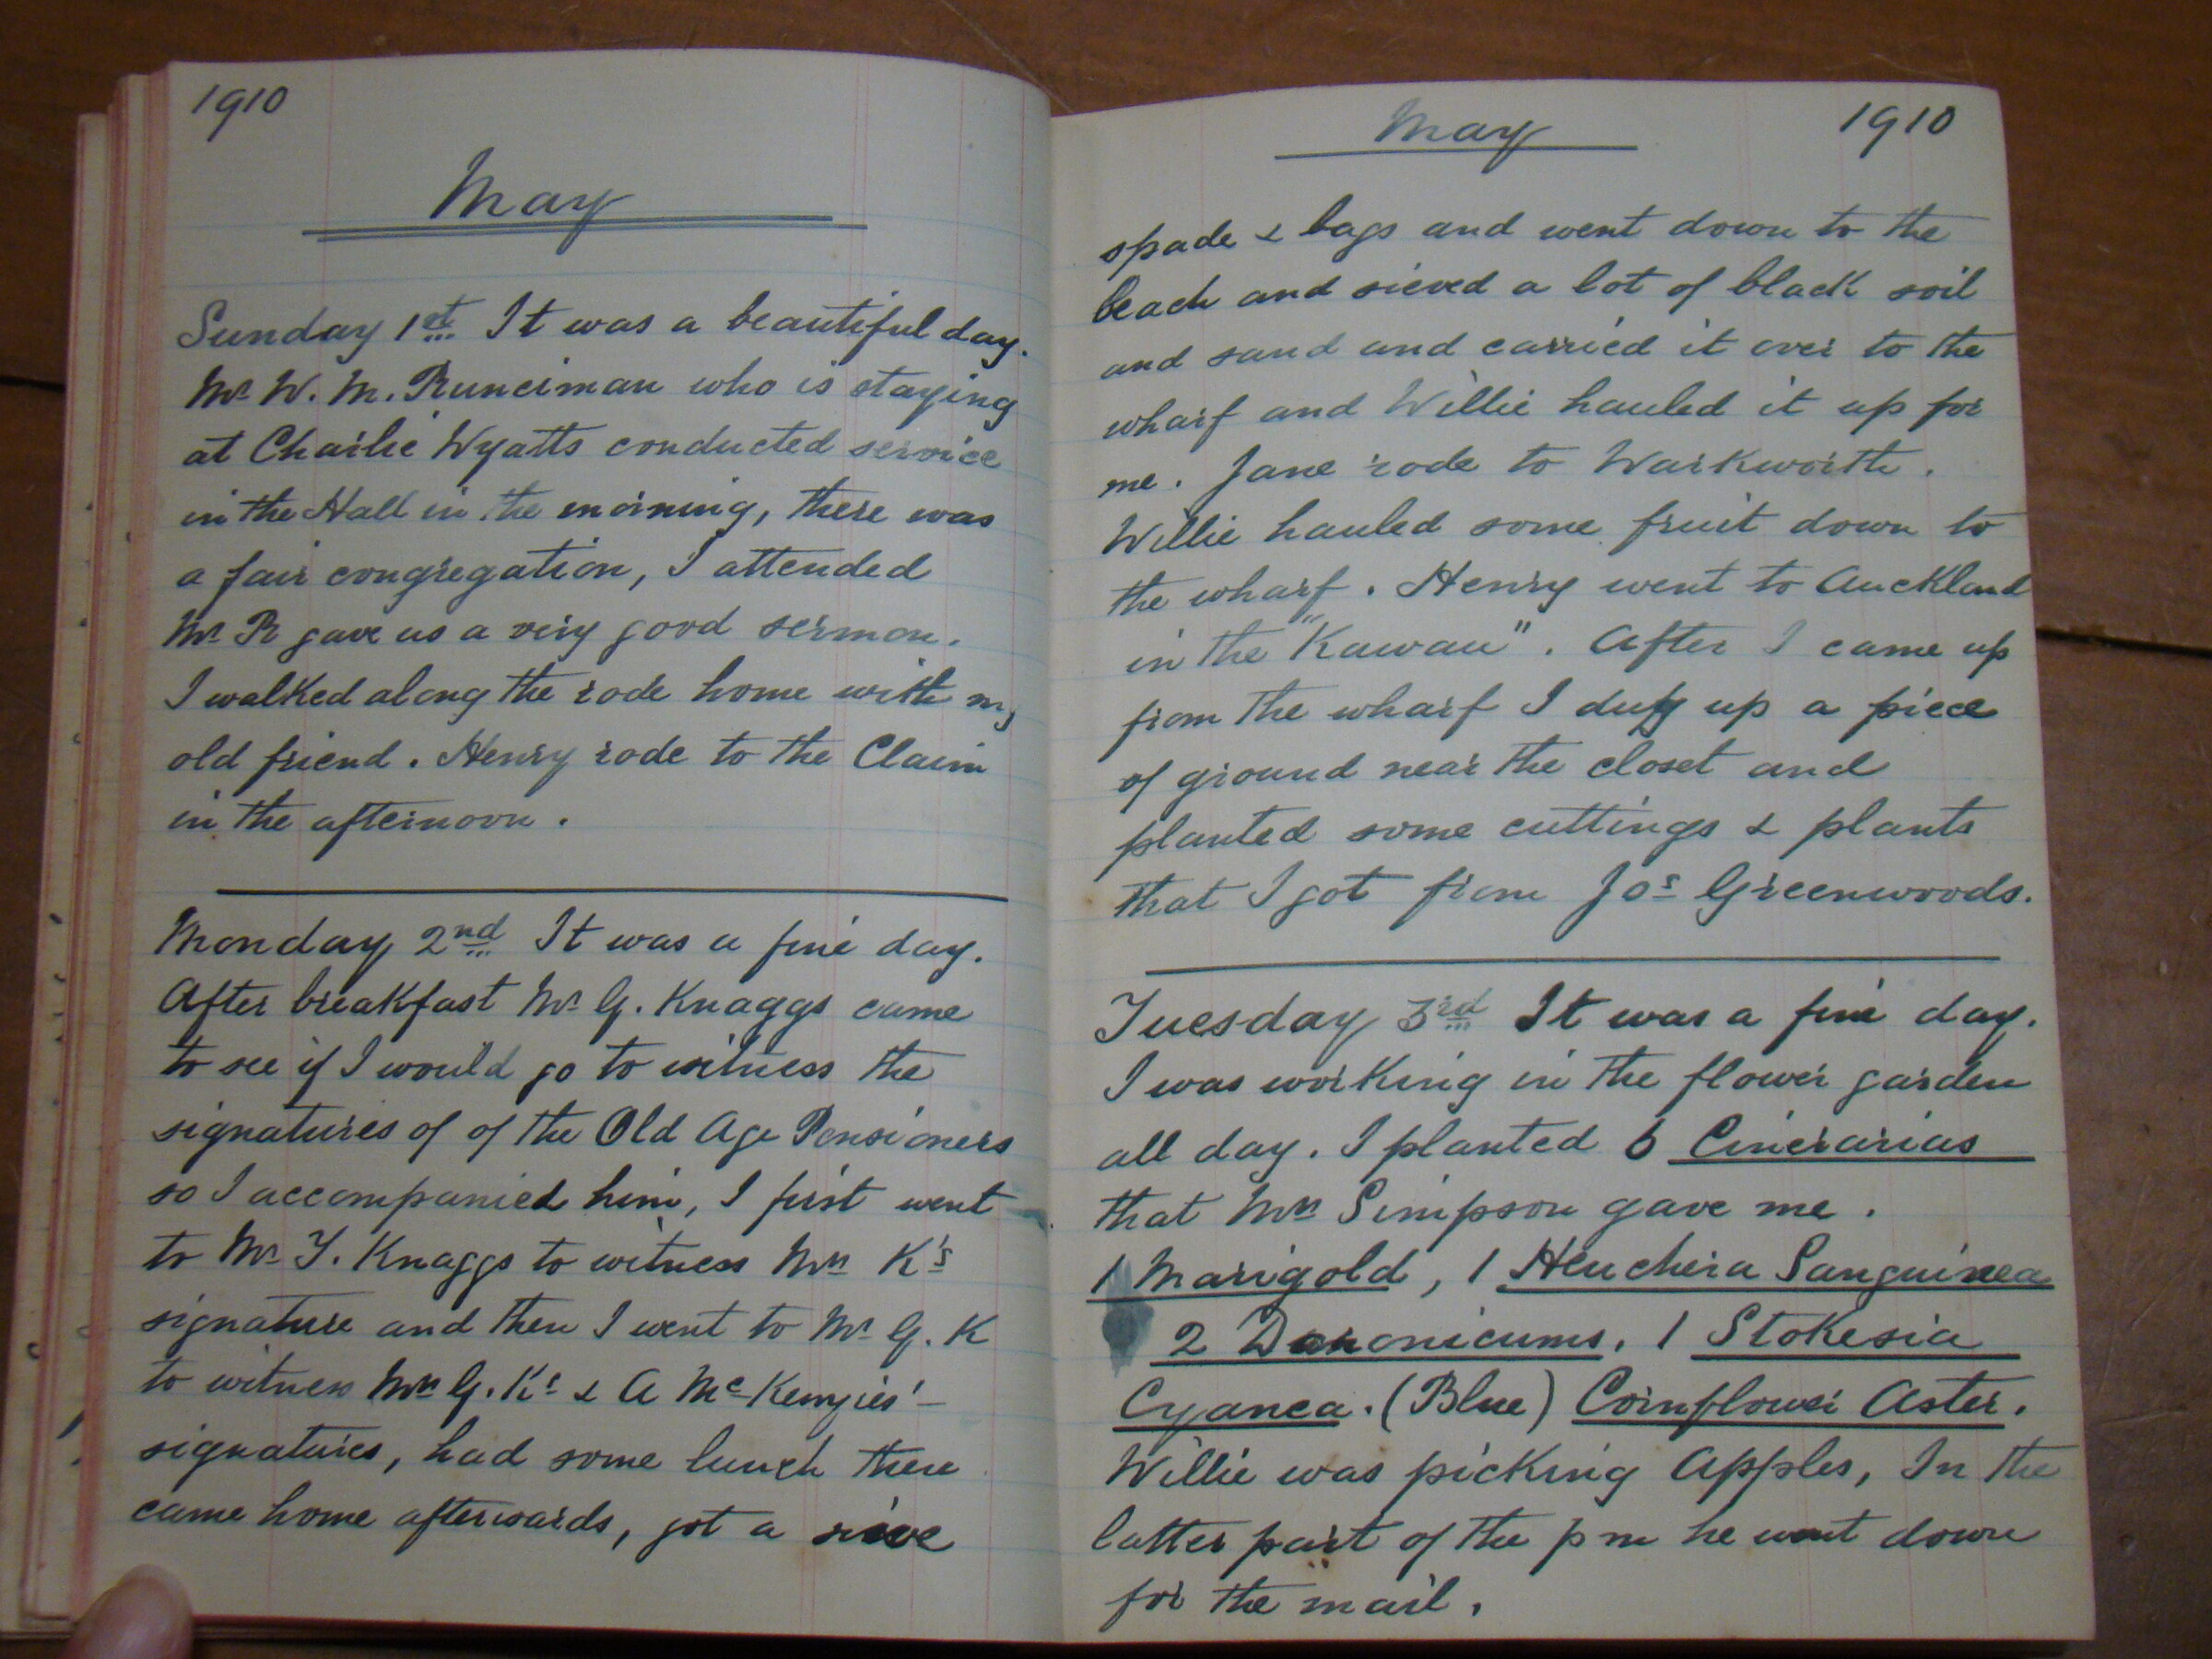 1910
May
Sunday 1st It was a beautiful day.
Mr W. M. Runciman who is staying
at Charlie Wyatts conducted service
in the Hall in the morning, there was
a fair congregation, I attended
Mr R gave us a very good sermon.
I walked along the rode home with my
old friend. Henry rode to the Claim
in the afternoon.
Monday 2nd It was a fine day.
After breakfast Mr G. Knaggs came
to see if I would go to witness the
signatures of of the Old Age Pensioners
so I accompanied him, I first went
to Mr T. Knaggs to witness Mrs K's
signature and then I went to Mr G. K
to witness Mrs G. Ks & A McKenzies'
signatures, had some lunch there
came home afterwards, got a sieve
May 1910
spade & bags and went down to the
beach and sieved a lot of black soil
and sand and carried it over to the
wharf and Willie hauled it up for
me. Jane rode to Warkworth.
Willie hauled some fruit down to
the wharf. Henry went to Auckland
in the "Kawau". After I came up
from the wharf I dug up a piece
of ground near the closet and
planted some cuttings & plants
that I got from Jos Greenwoods.
Tuesday 3rd It was a fine day.
I was working in the flower garden
all day. I planted 6 Cinerarias
that Mrs Simpson gave me.
1 Marigold, 1 Heuchera Sanguinea
2 Doronicums. 1 Stokesia
Cyanea. (Blue) Cornflower Aster.
Willie was picking Apples, In the
latter part of the pm he went down
for the mail.